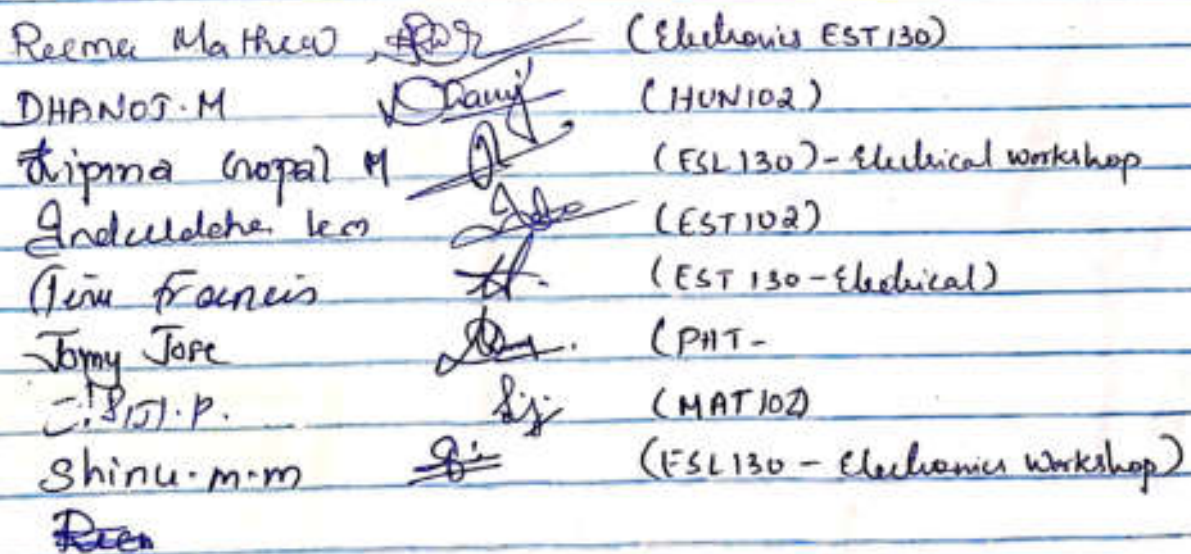 Reema Mathew (Electronics EST130)
DHANOJ.M (HUN102)
Gopal M (ESL130)-Electrical workshop
(EST102)
Tinu Francis (EST 130-Electrical)
Jomy Jose (PHT-
SIJI.P. Siji (MAT102)
Shinu.m.m (ESL130 - Electronics Workshop)